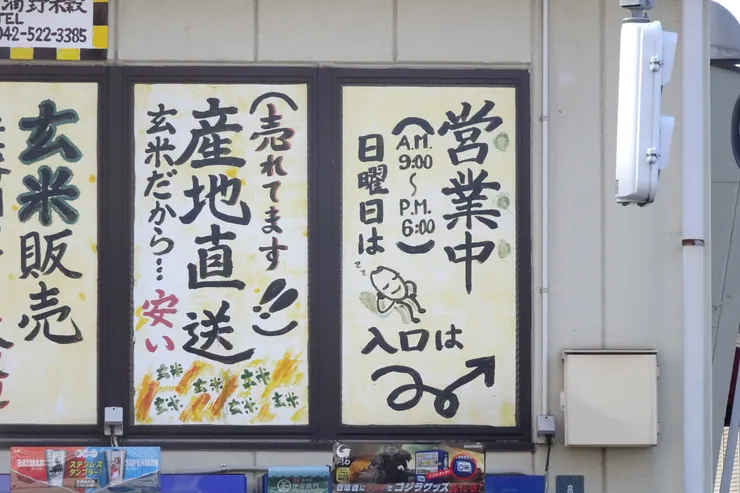 TEL
042-522-3385
営業中
(A.M. 9:00〜P.M. 6:00)
日曜日は
zzz
入口は
(売れてます!!)
産地直送
玄米だから…安い
玄米 玄米 玄米
玄米 玄米 玄米 玄米
玄米販売
BATMAN
ステンレスタンブラー
SUPERMAN
ゴジラグッズ